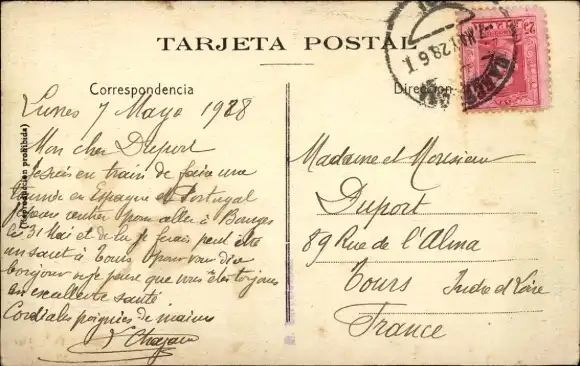 TARJETA POSTAL
Correspondencia
Dirección
(Reproducción prohibida)
25
Lunes 7 Mayo 1928
Mon cher Duport
Je suis en train de faire une
tournée en Espagne et Portugal
je pense rentrer pour aller à Bourges
le 31 Mai et de là je ferais peut être
un saut à Tours pour vous dire
bonjour je pense que vous êtes toujours
en excellente santé
Cordiales poignées de mains
Madame et Monsieur
Duport
89 Rue de l'Alma
Tours Indre et Loire
France